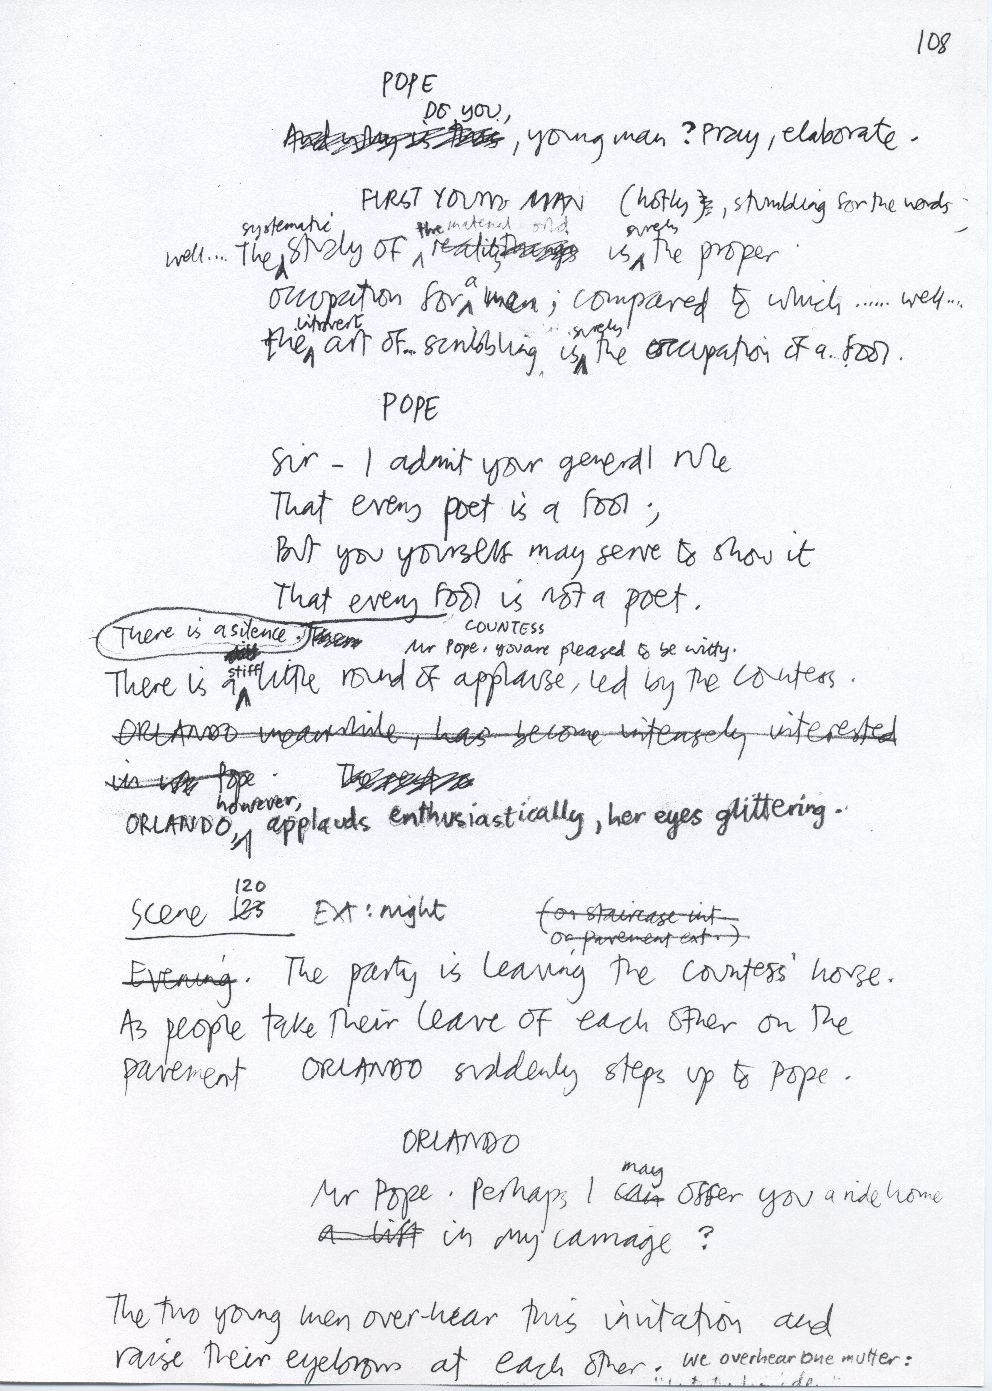 108
POPE
DO YOU,
And why is this, young man? Pray, elaborate.
FIRST YOUNG MAN (hotly), stumbling for the words
systematic the material world surely
well.... The study of reality things is the proper
a
occupation for man; compared to which ...... well...
introvert surely
the art of... scribbling is the occupation of a.. fool.
POPE
Sir – I admit your general rule
That every poet is a fool;
But you yourself may serve to show it
That every fool is not a poet.
COUNTESS
There is a silence. Mr Pope. you are pleased to be witty.
stiff
There is a little round of applause, led by the Countess.
ORLANDO meanwhile, has become intensely interested
in Pope.
however,
ORLANDO, applauds enthusiastically, her eyes glittering.
120
Scene 123 EXT: night (on staircase int
or pavement ext.)
Evening. The party is leaving the Countess' house.
As people take their leave of each other on the
pavement ORLANDO suddenly steps up to Pope.
ORLANDO
may
Mr Pope. Perhaps I can offer you a ride home
a lift in my carriage?
The two young men over-hear this invitation and
raise their eyebrows at each other. We overhear one mutter: